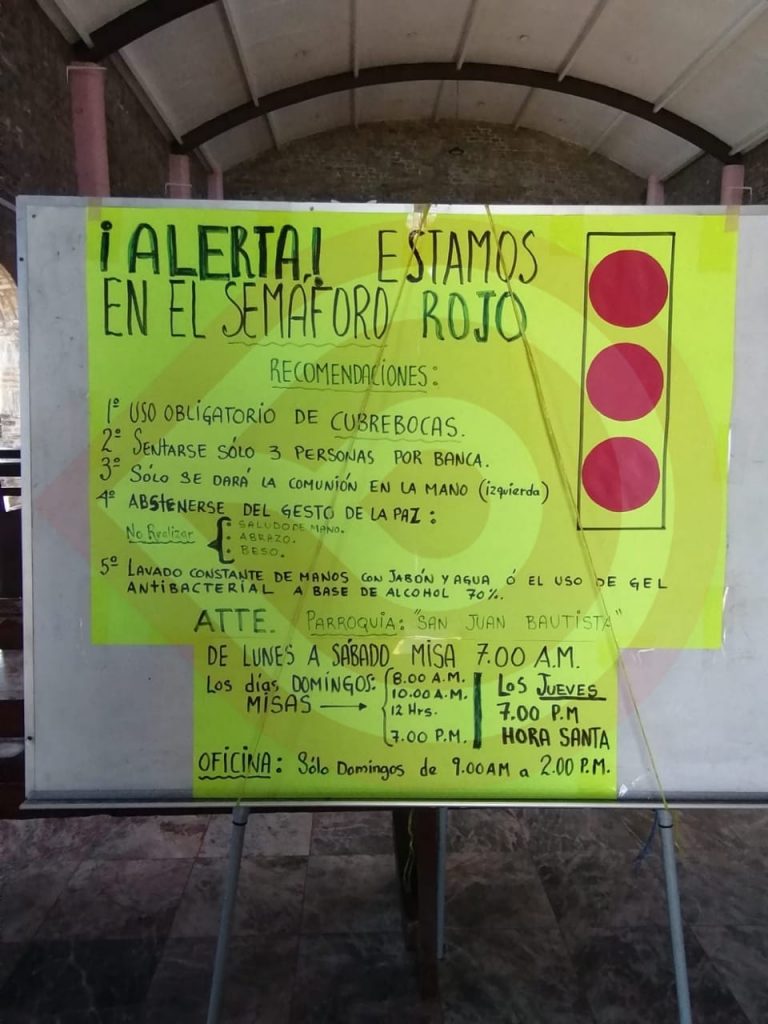 ¡ALERTA! ESTAMOS
EN EL SEMÁFORO ROJO
RECOMENDACIONES:
1º USO OBLIGATORIO DE CUBREBOCAS.
2º SENTARSE SÓLO 3 PERSONAS POR BANCA.
3º SÓLO SE DARÁ LA COMUNIÓN EN LA MANO (izquierda)
4º ABSTENERSE DEL GESTO DE LA PAZ:
No Realizar
SALUDO DE MANO.
ABRAZO.
BESO.
5º LAVADO CONSTANTE DE MANOS CON JABÓN Y AGUA Ó EL USO DE GEL
ANTIBACTERIAL A BASE DE ALCOHOL 70%.
ATTE. PARROQUIA: "SAN JUAN BAUTISTA"
DE LUNES A SÁBADO MISA 7.00 A.M.
Los días DOMINGOS:
MISAS →
8.00 A.M.
10.00 A.M.
12 Hrs.
7.00 P.M.
LOS JUEVES
7.00 P.M
HORA SANTA
OFICINA: Sólo Domingos de 9.00AM a 2.00 P.M.